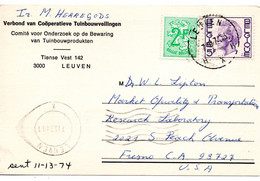 Ir M. Herregods
Verbond van Coöperatieve Tuinbouwveilingen
Comité voor Onderzoek op de Bewaring
van Tuinbouwprodukten
Tiense Vest 142
3000 LEUVEN
Dr. W. L. Lipton
Market Quality & Transportation
Research Laboratory
2021 S. Peach Avenue
Fresno CA. 93727
U.S.A
sent 11-13-74